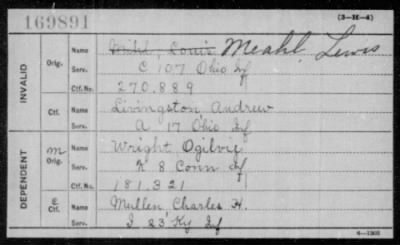 169891
(3-H-4)
INVALID
Orig.
Name Mihl, Louis Meahl, Lewis
Serv. C 107 Ohio Inf
Ctf.No. 270.889
Ctf.
Name Livingston, Andrew
Serv. A 17 Ohio Inf
DEPENDENT
M Orig.
Name Wright, Ogilvie
Serv. K 8 Conn Inf
Ctf. No. 181.321
C Ctf.
Name Mullen, Charles H.
Serv. I 23 Ky Inf